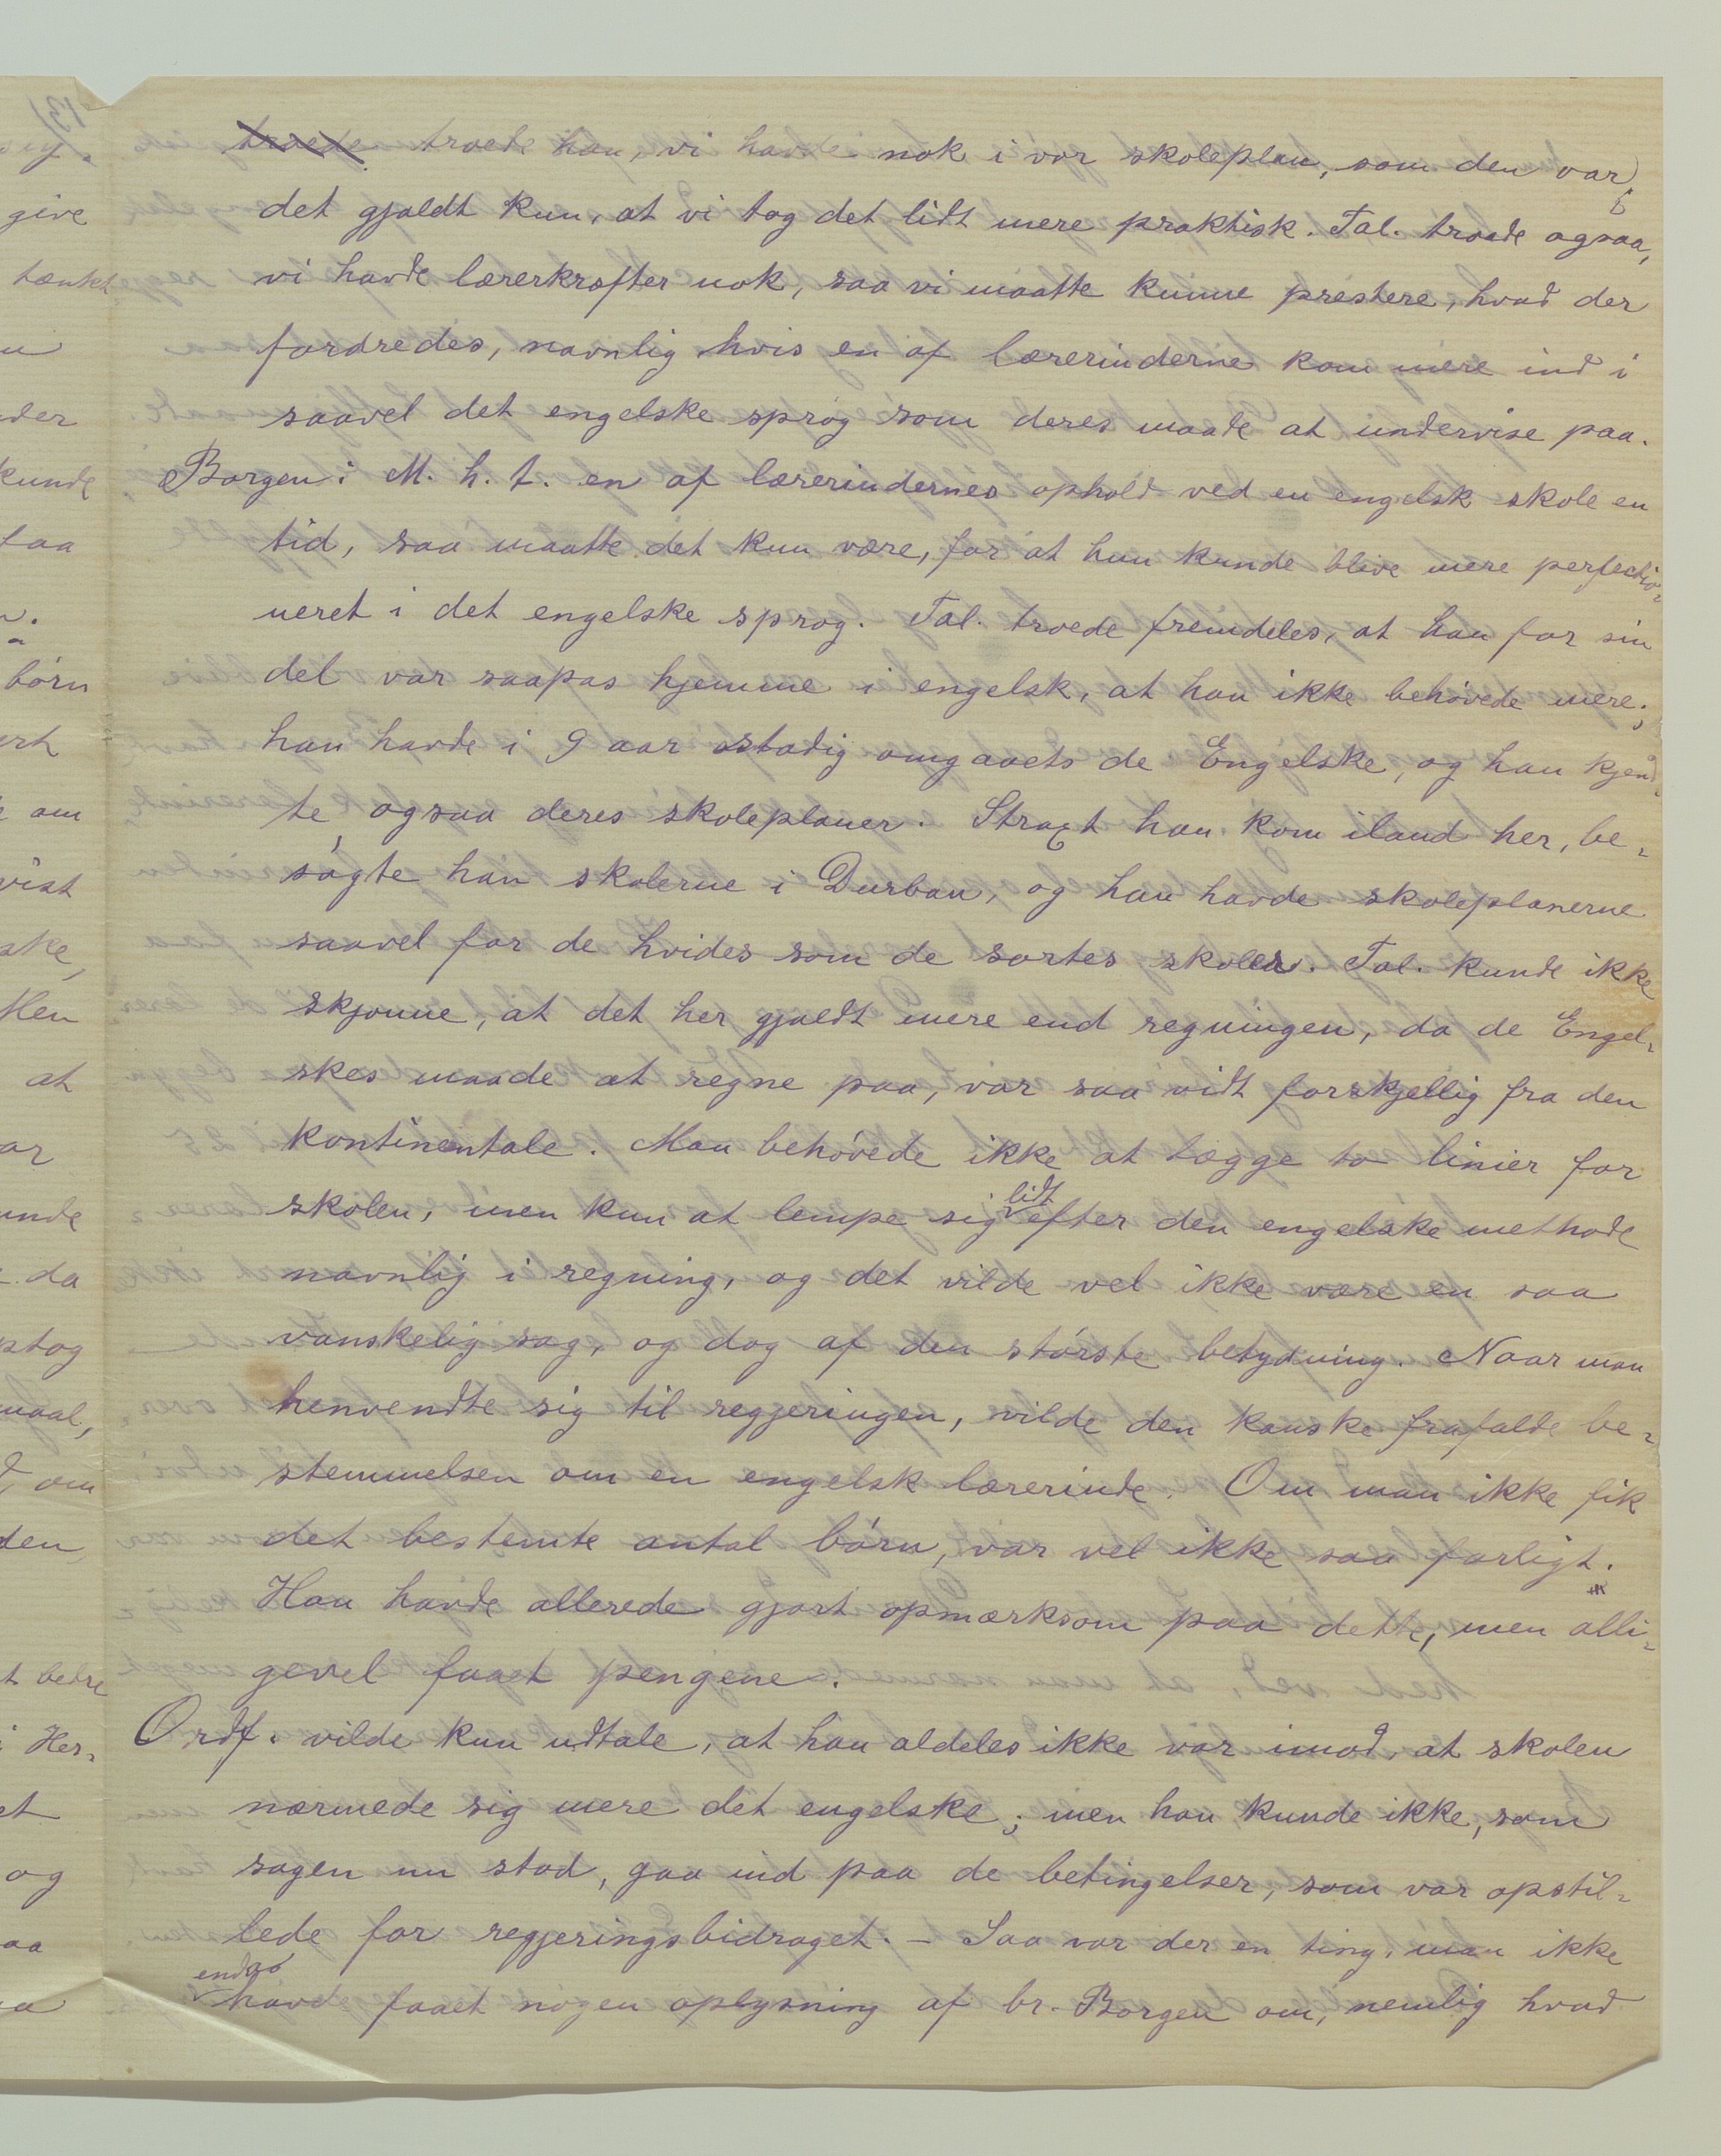 troede troede han, vi havde nok i vor skoleplan, som den var,
det gjaldt kun, at vi tog det lidt mere praktisk. Tal. troede ogsaa,
vi havde lærerkræfter nok, saa vi maatte kunne prestere, hvad der
fordredes, navnlig hvis en af lærerinderne kom mere ind i
saavel det engelske sprog som deres maade at undervise paa.
Borgen: M. h. t. en af lærerindernes ophold ved en engelsk skole en
tid, saa maatte det kun være, for at hun kunde blive mere perfectio-
neret i det engelske sprog. Tal. troede fremdeles, at han for sin
del var saapas hjemme i engelsk, at han ikke behøvede mere;
han havde i 9 aar stadig omgaaets de Engelske, og han kjend-
te ogsaa deres skoleplaner. Strax han kom iland her, be-
søgte han skolerne i Durban, og han havde skoleplanerne
saavel for de hvides som de sortes skoler. Tal. kunde ikke
skjønne, at det her gjaldt mere end regningen, da de Engel-
skes maade at regne paa, var saa vidt forskjellig fra den
kontinentale. Man behøvede ikke at lægge to linier for
skolen, men kun at lempe sig lidt efter den engelske methode
navnlig i regning, og det vilde vel ikke være en saa
vanskelig sag, og dog af den største betydning. Naar man
henvendte sig til regjeringen, vilde den kanske frafalde be-
stemmelsen om en engelsk lærerinde. Om man ikke fik
det bestemte antal børn, var vel ikke saa farligt.
Han havde allerede gjort opmærksom paa dette, men alli-
gevel faaet pengene.
Ordf. vilde kun udtale, at han aldeles ikke var imod, at skolen
nærmede sig mere det engelske; men han kunde ikke, som
sagen nu stod, gaa ind paa de betingelser, som var opstil-
lede for regjeringsbidraget. – Saa var der en ting, man ikke
endao havde faaet nogen oplysning af br. Borgen om, nemlig hvad